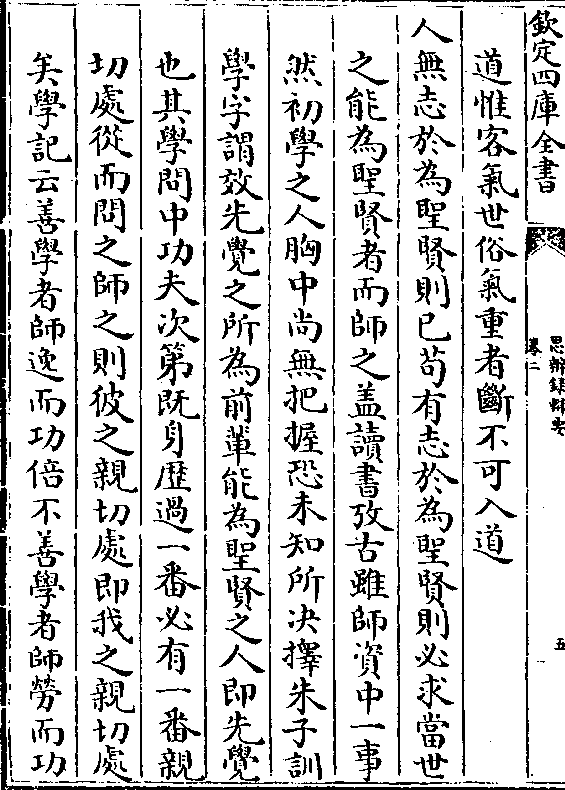 欽定四庫全書
思辨録輯要
卷二
五
道惟客氣世俗氣重者斷不可入道
人無志於為聖賢則已苟有志於為聖賢則必求當世
之能為聖賢者而師之盖讀書攷古雖師資中一事
然初學之人胸中尚無把握恐未知所决擇朱子訓
學字謂效先覺之所為前輩能為聖賢之人即先覺
也其學問中功夫次第既身歴過一番必有一番親
切處從而問之師之則彼之親切處即我之親切處
矣學記云善學者師逸而功倍不善學者師勞而功